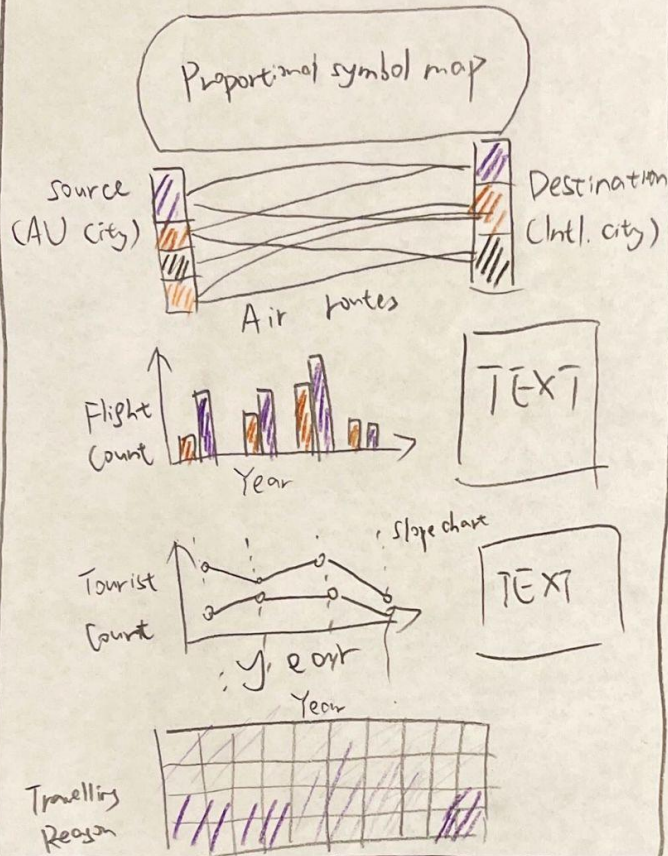 Proportional symbol map
source
(AU City)
Destination
(Intl. city)
Air routes
Flight
Count
Year
TEXT
slope chart
Tourist
Count
Year
TEXT
Year
Travelling
Reason